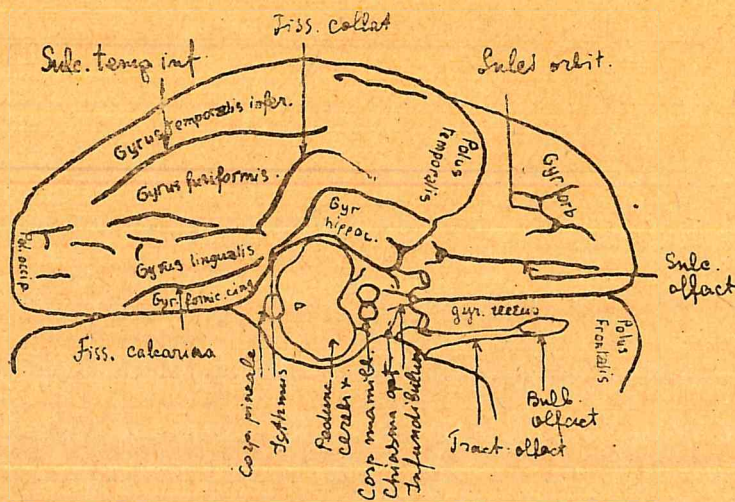 Fiss. collat
Sulc. temp inf
Sulci orbit.
Gyrus temporalis infer.
Polus
Temporalis
Gyrus fusiformis.
Gyr. orb
Gyr
hippoc.
Pol. occip
Gyrus lingualis
Gyr. fornic. cing
Sulc.
olfact
gyr. rectus
Polus
Frontalis
Fiss. calcarina
Corp. pineale
Isthmus
Pedunc
cerebr.
Corp mamill.
Chiasma opt
Infundibulus
Tract. olfact
Bulb.
olfact